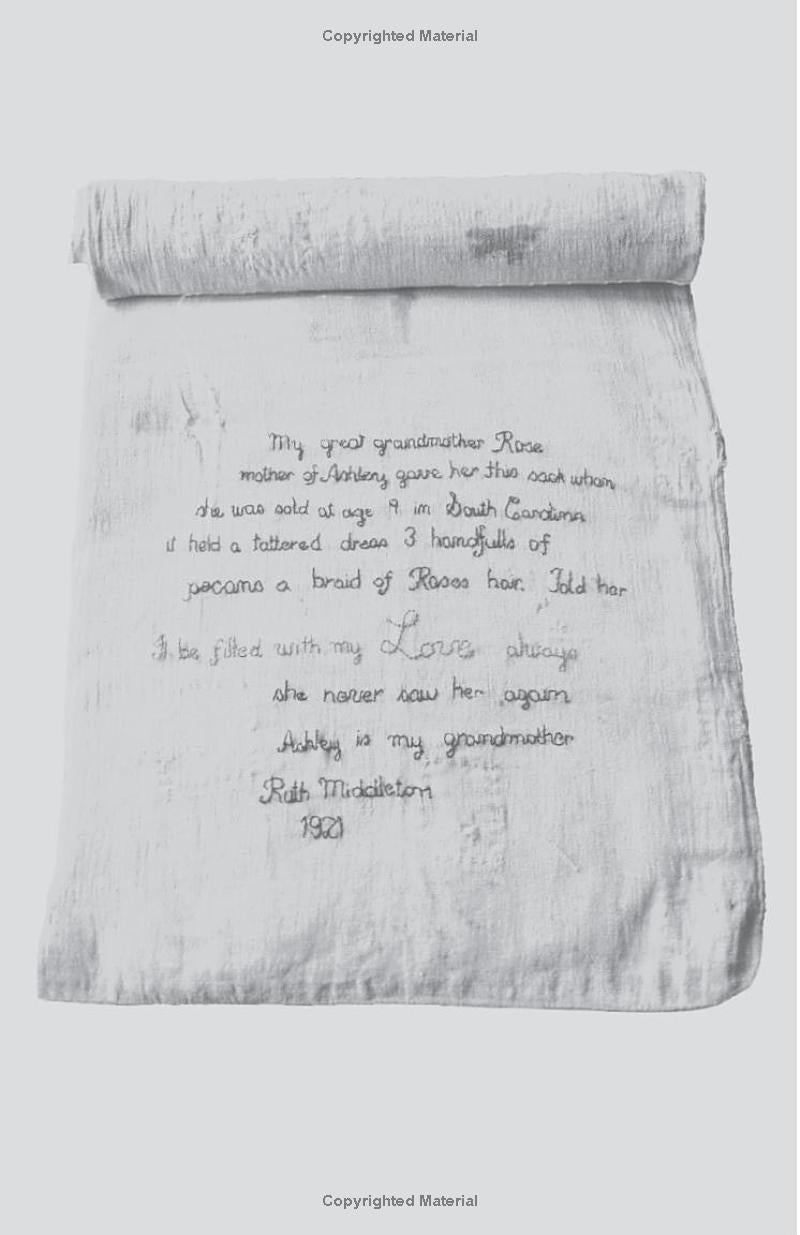 Copyrighted Material
My great grandmother Rose
mother of Ashley gave her this sack when
she was sold at age 9 in South Carolina
it held a tattered dress 3 handfulls of
pecans a braid of Roses hair. Told her
It be filled with my Love always
she never saw her again
Ashley is my grandmother
Ruth Middleton
1921
Copyrighted Material